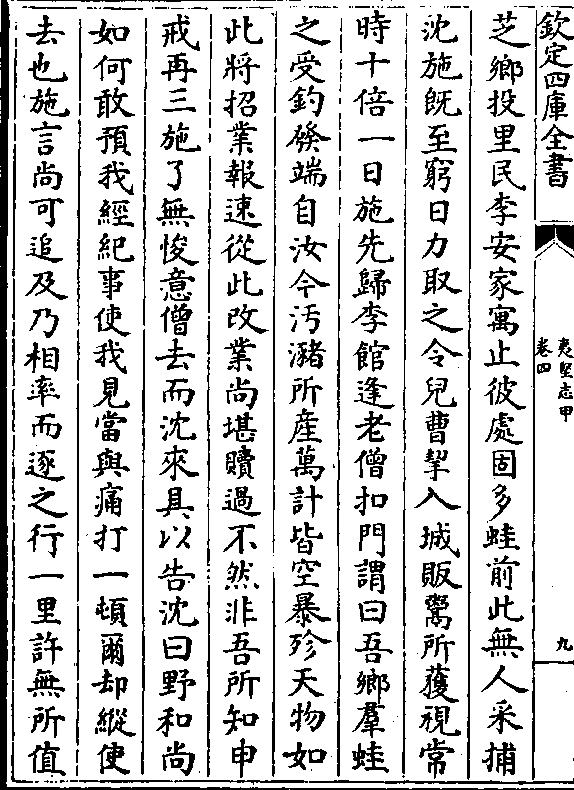 欽定四庫全書
夷堅志甲
卷四
九
芝鄉投里民李安家寓止彼處固多蛙前此無人采捕
沈施既至窮日力取之令兒曹挈入城販鬻所獲視常
時十倍一日施先歸李館逢老僧扣門謂曰吾鄉羣蛙
之受釣發端自汝今汚瀦所產萬計皆空暴殄天物如
此將招業報速從此改業尚堪贖過不然非吾所知申
戒再三施了無悛意僧去而沈來具以告沈曰野和尚
如何敢預我經紀事使我見當與痛打一頓爾却縱使
去也施言尚可追及乃相率而逐之行一里許無所值